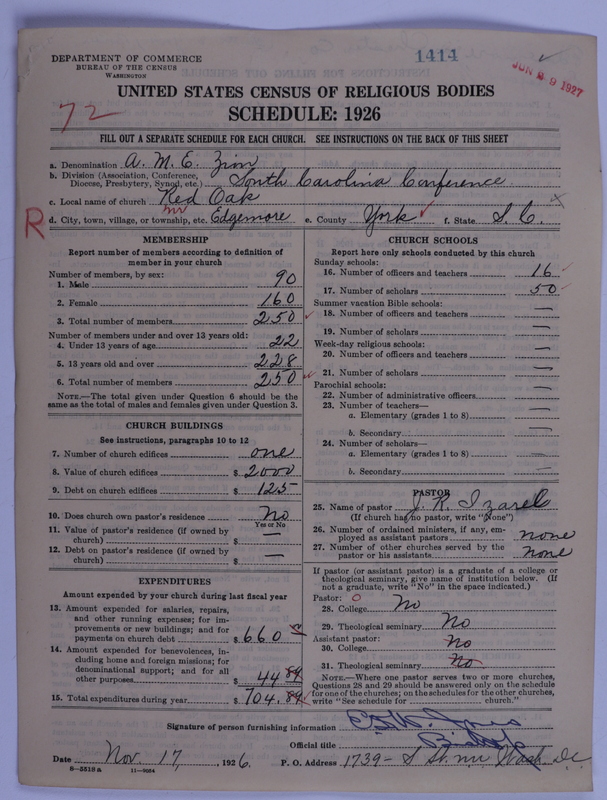 DEPARTMENT OF COMMERCE
BUREAU OF THE CENSUS
WASHINGTON
1414
JUN 29 1927
UNITED STATES CENSUS OF RELIGIOUS BODIES
72
SCHEDULE: 1926
FILL OUT A SEPARATE SCHEDULE FOR EACH CHURCH. SEE INSTRUCTIONS ON THE BACK OF THIS SHEET
a. Denomination A. M. E. Zion
b. Division (Association, Conference, Diocese, Presbytery, Synod, etc.) South Carolina Conference
c. Local name of church Red Oak
R
d. City, town, village, or township, etc. nr Edgemore e. County York f. State S. C.
MEMBERSHIP
Report number of members according to definition of
member in your church
Number of members, by sex:
1. Male 90
2. Female 160
3. Total number of members 250
Number of members under and over 13 years old:
4. Under 13 years of age 22
5. 13 years old and over 228
6. Total number of members 250
NOTE.—The total given under Question 6 should be
same as the total of males and females given under Question 3.
CHURCH BUILDINGS
See instructions, paragraphs 10 to 12
7. Number of church edifices one
8. Value of church edifices $ 2000
9. Debt on church edifices $ 125
10. Does church own pastor's residence No
Yes or No
11. Value of pastor's residence (if owned by
church) $ —
12. Debt on pastor's residence (if owned by
church) $ —
EXPENDITURES
Amount expended by your church during last fiscal year
13. Amount expended for salaries, repairs,
and other running expenses; for im-
provements or new buildings; and for
payments on church debt $ 660
14. Amount expended for benevolences, in-
cluding home and foreign missions; for
denominational support; and for all
other purposes $ 44 84
15. Total expenditures during year $ 704.84
CHURCH SCHOOLS
Report here only schools conducted by this church
Sunday schools:
16. Number of officers and teachers 16
17. Number of scholars 50
Summer vacation Bible schools:
18. Number of officers and teachers —
19. Number of scholars —
Week-day religious schools:
20. Number of officers and teachers —
21. Number of scholars —
Parochial schools:
22. Number of administrative officers —
23. Number of teachers—
a. Elementary (grades 1 to 8) —
b. Secondary —
24. Number of scholars—
a. Elementary (grades 1 to 8) —
b. Secondary —
PASTOR
25. Name of pastor J. R.
(If church has no pastor, write "None")
26. Number of ordained ministers, if any, em-
ployed as assistant pastors none
27. Number of other churches served by the
pastor or his assistants none
If pastor (or assistant pastor) is a graduate of a college or
theological seminary, give name of institution below. (If
not a graduate, write "No" in the space indicated.)
Pastor: 0
28. College No
29. Theological seminary No
Assistant pastor:
30. College No
31. Theological seminary No
NOTE.—Where one pastor serves two or more churches,
Questions 28 and 29 should be answered only on the schedule
for one of the churches; on the schedules for the other churches,
write "See schedule for church."
Signature of person furnishing information
Official title Bishop
Date Nov. 17, 1926. P. O. Address 1739 - S St. nw Wash DC
8—5518 a 11—9684